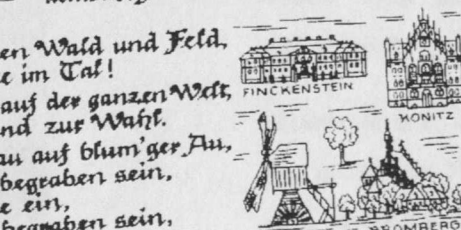 en Wald und Feld,
e im Tal!
auf der ganzen Welt,
nd zur Wahl.
au auf blum'ger Au,
begraben sein,
e ein,
begraben sein,
FINCKENSTEIN
KONITZ
BROMBERG